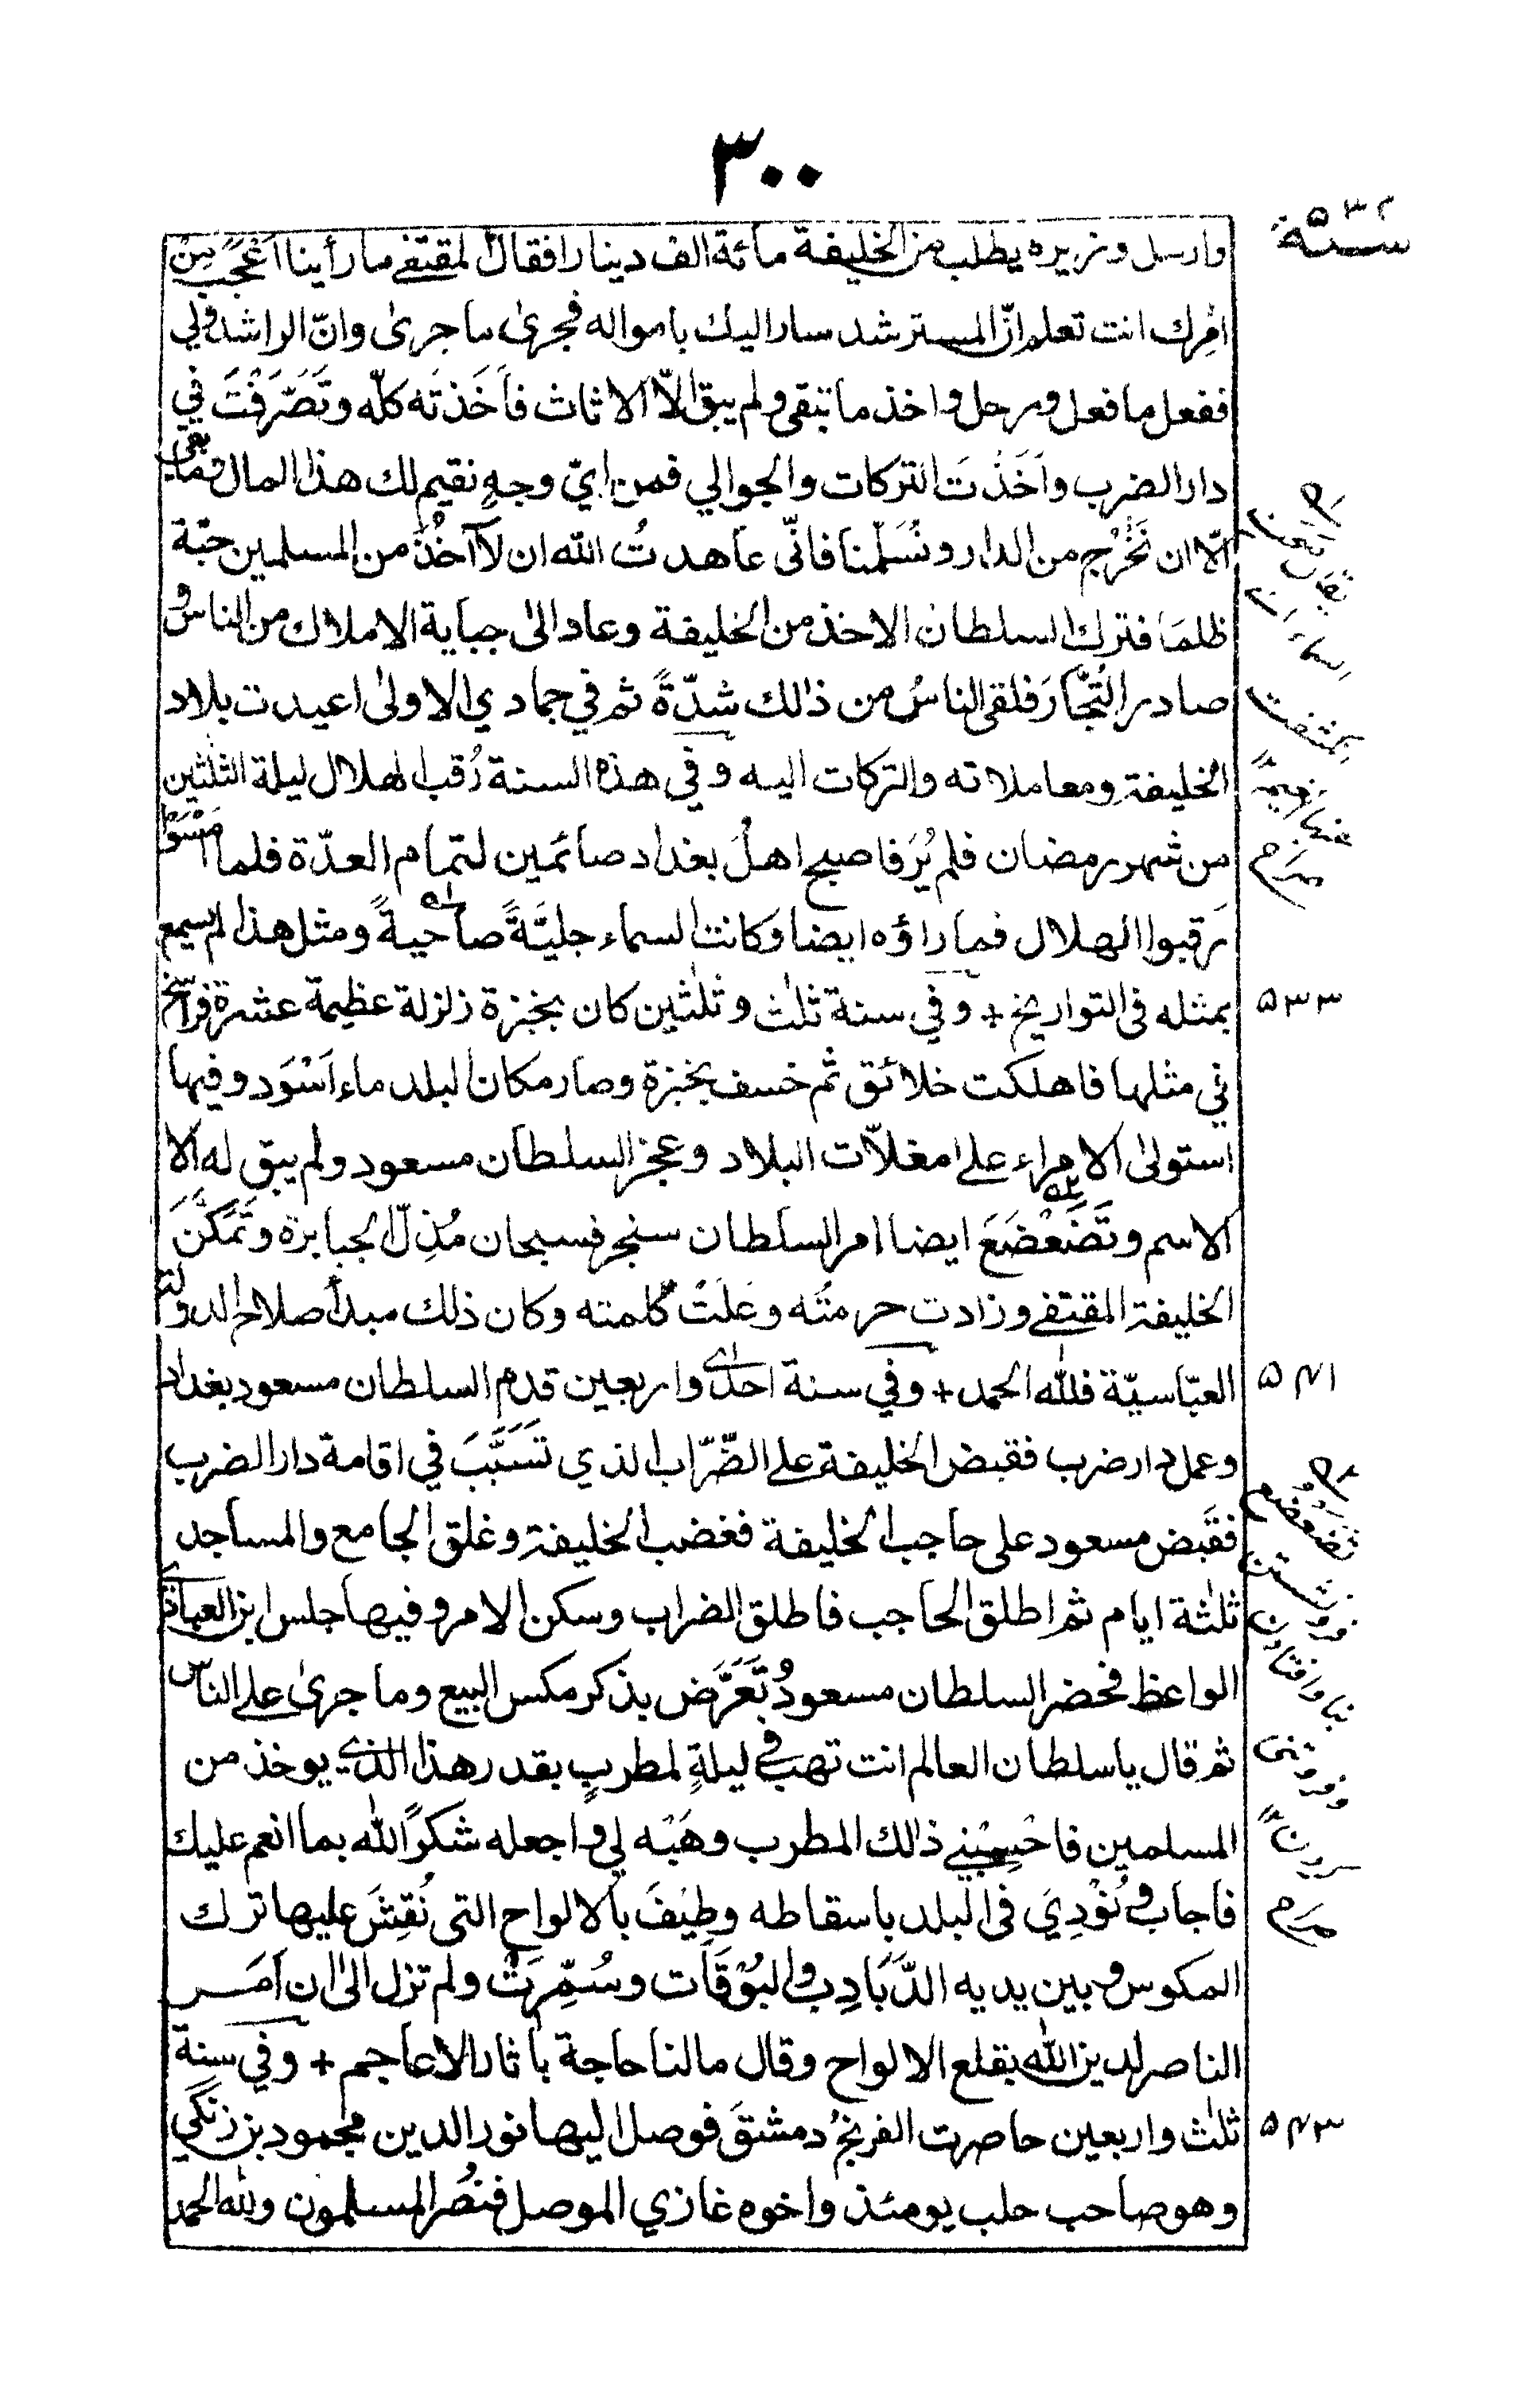 ٣٠٠
سنة ٥٣٢
وارسل وزيره يطلب من الخليفة مائة الف دينار افقال المقتفي ما رأينا اَعْجَبَ مِنْ
امْرِك انت تعلم انّ المسترشد سار اليك باموالہ فجرىٰ ما جرىٰ وانّ الراشد ولي
ففعل ما فعل ورحل واخذ ما تبقى ولم يبق الّا الاثاث فَاَخَذتَه كلّه وتَصَرَّفْتَ في
دار الضرب واَخَذْتَ التركات والجوالي فمن ايّ وجهٍ نقيم لك هذا المال وما بقى
الّا ان نَخْرُج من الدار ونُسَلّمنا فانّى عاهدتُ الله ان لا آخُذُ من المسلمين حبّة
ظلما فترك السلطان الاخذ من الخليفة وعاد الىٰ جباية الاملاك من الناس و
صادر التُجَّارَ فلقى الناسُ من ذالك شدّةً ثم في جمادي الاولىٰ اعيدت بلاد
الخليفة ومعاملاته والتركات اليه وفي هذه السنة رُقب الهلال ليلة الثلٰثين
من شهر رمضان فلم يُرَ فاصبح اهلُ بغداد صائمين لتمام العدّة فلما اَمْسَوْا
رَقبوا الهلال فما راؤه ايضا وكانت السماء جليَّةً صاحيةً ومثل هذا لم يسمع
بمثله فى التواريخ + وفي سنة ثلٰث وثلٰثين كان بجنزة زلزلة عظيمة عشرة فراسخ
٥٣٣
في مثلها فاهلكت خلائق ثم خسف بجنزة وصار مكان البلد ماء اَسْوَد وفيها
استولىٰ الامراء على مغلاّت البلاد وعجز السلطان مسعود ولم يبق له الا
الاسم وتَضَعْضَعَ ايضا امر السلطان سنجر فسبحان مُذِلّ الجبابرة وتَمَكَّنَ
الخليفة المقتفي وزادت حرمتُه وعَلَتْ كلمته وكان ذلك مبدأ صلاح الدولة
العبّاسيّة فلله الحمد + وفي سنة احدىٰ واربعين قدم السلطان مسعود بغداد
٥٤١
وعمل دار ضرب فقبض الخليفة على الضّرّاب الذي تَسَبَّبَ في اقامة دار الضرب
فقَبَض مسعود على حاجب الخليفة فغضب الخليفة وغلق الجامع والمساجد
ثلٰثة ايام ثم اطلق الحاجب فاطلق الضراب وسكن الامر وفيها جلس ابن العبادي
الواعظ فحضر السلطان مسعودُ وتَعَرَّض بذكر مكس البيع وما جرىٰ على الناس
ثم قال يا سلطان العالم انت تهب في ليلةٍ لمطربٍ بقدر هذا الذي يوخذ من
المسلمين فاحْسِبْني ذالك المطرب وهَبْه لي واجعله شكرًا لله بما انعم عليك
فاجاب ونُوْدِيَ فى البلد باسقاطه وطِيْفَ بالالواح التى نُقِشَ عليها ترك
المكوس وبين يديه الدَّبَادِب والبُوْقَات وسُمِّرَتْ ولم تزل الىٰ ان اَمَر
الناصر لدين الله بقلع الالواح وقال ما لنا حاجة باٰثار الاعاجم + وفي سنة
ثلٰث واربعين حاصرت الفرنجُ دمشقَ فوصل اليها نور الدين محمود بن زنكي
٥٤٣
وهو صاحب حلب يومئذ واخوه غازي الموصل فنُصِر المسلمون ولله الحمد